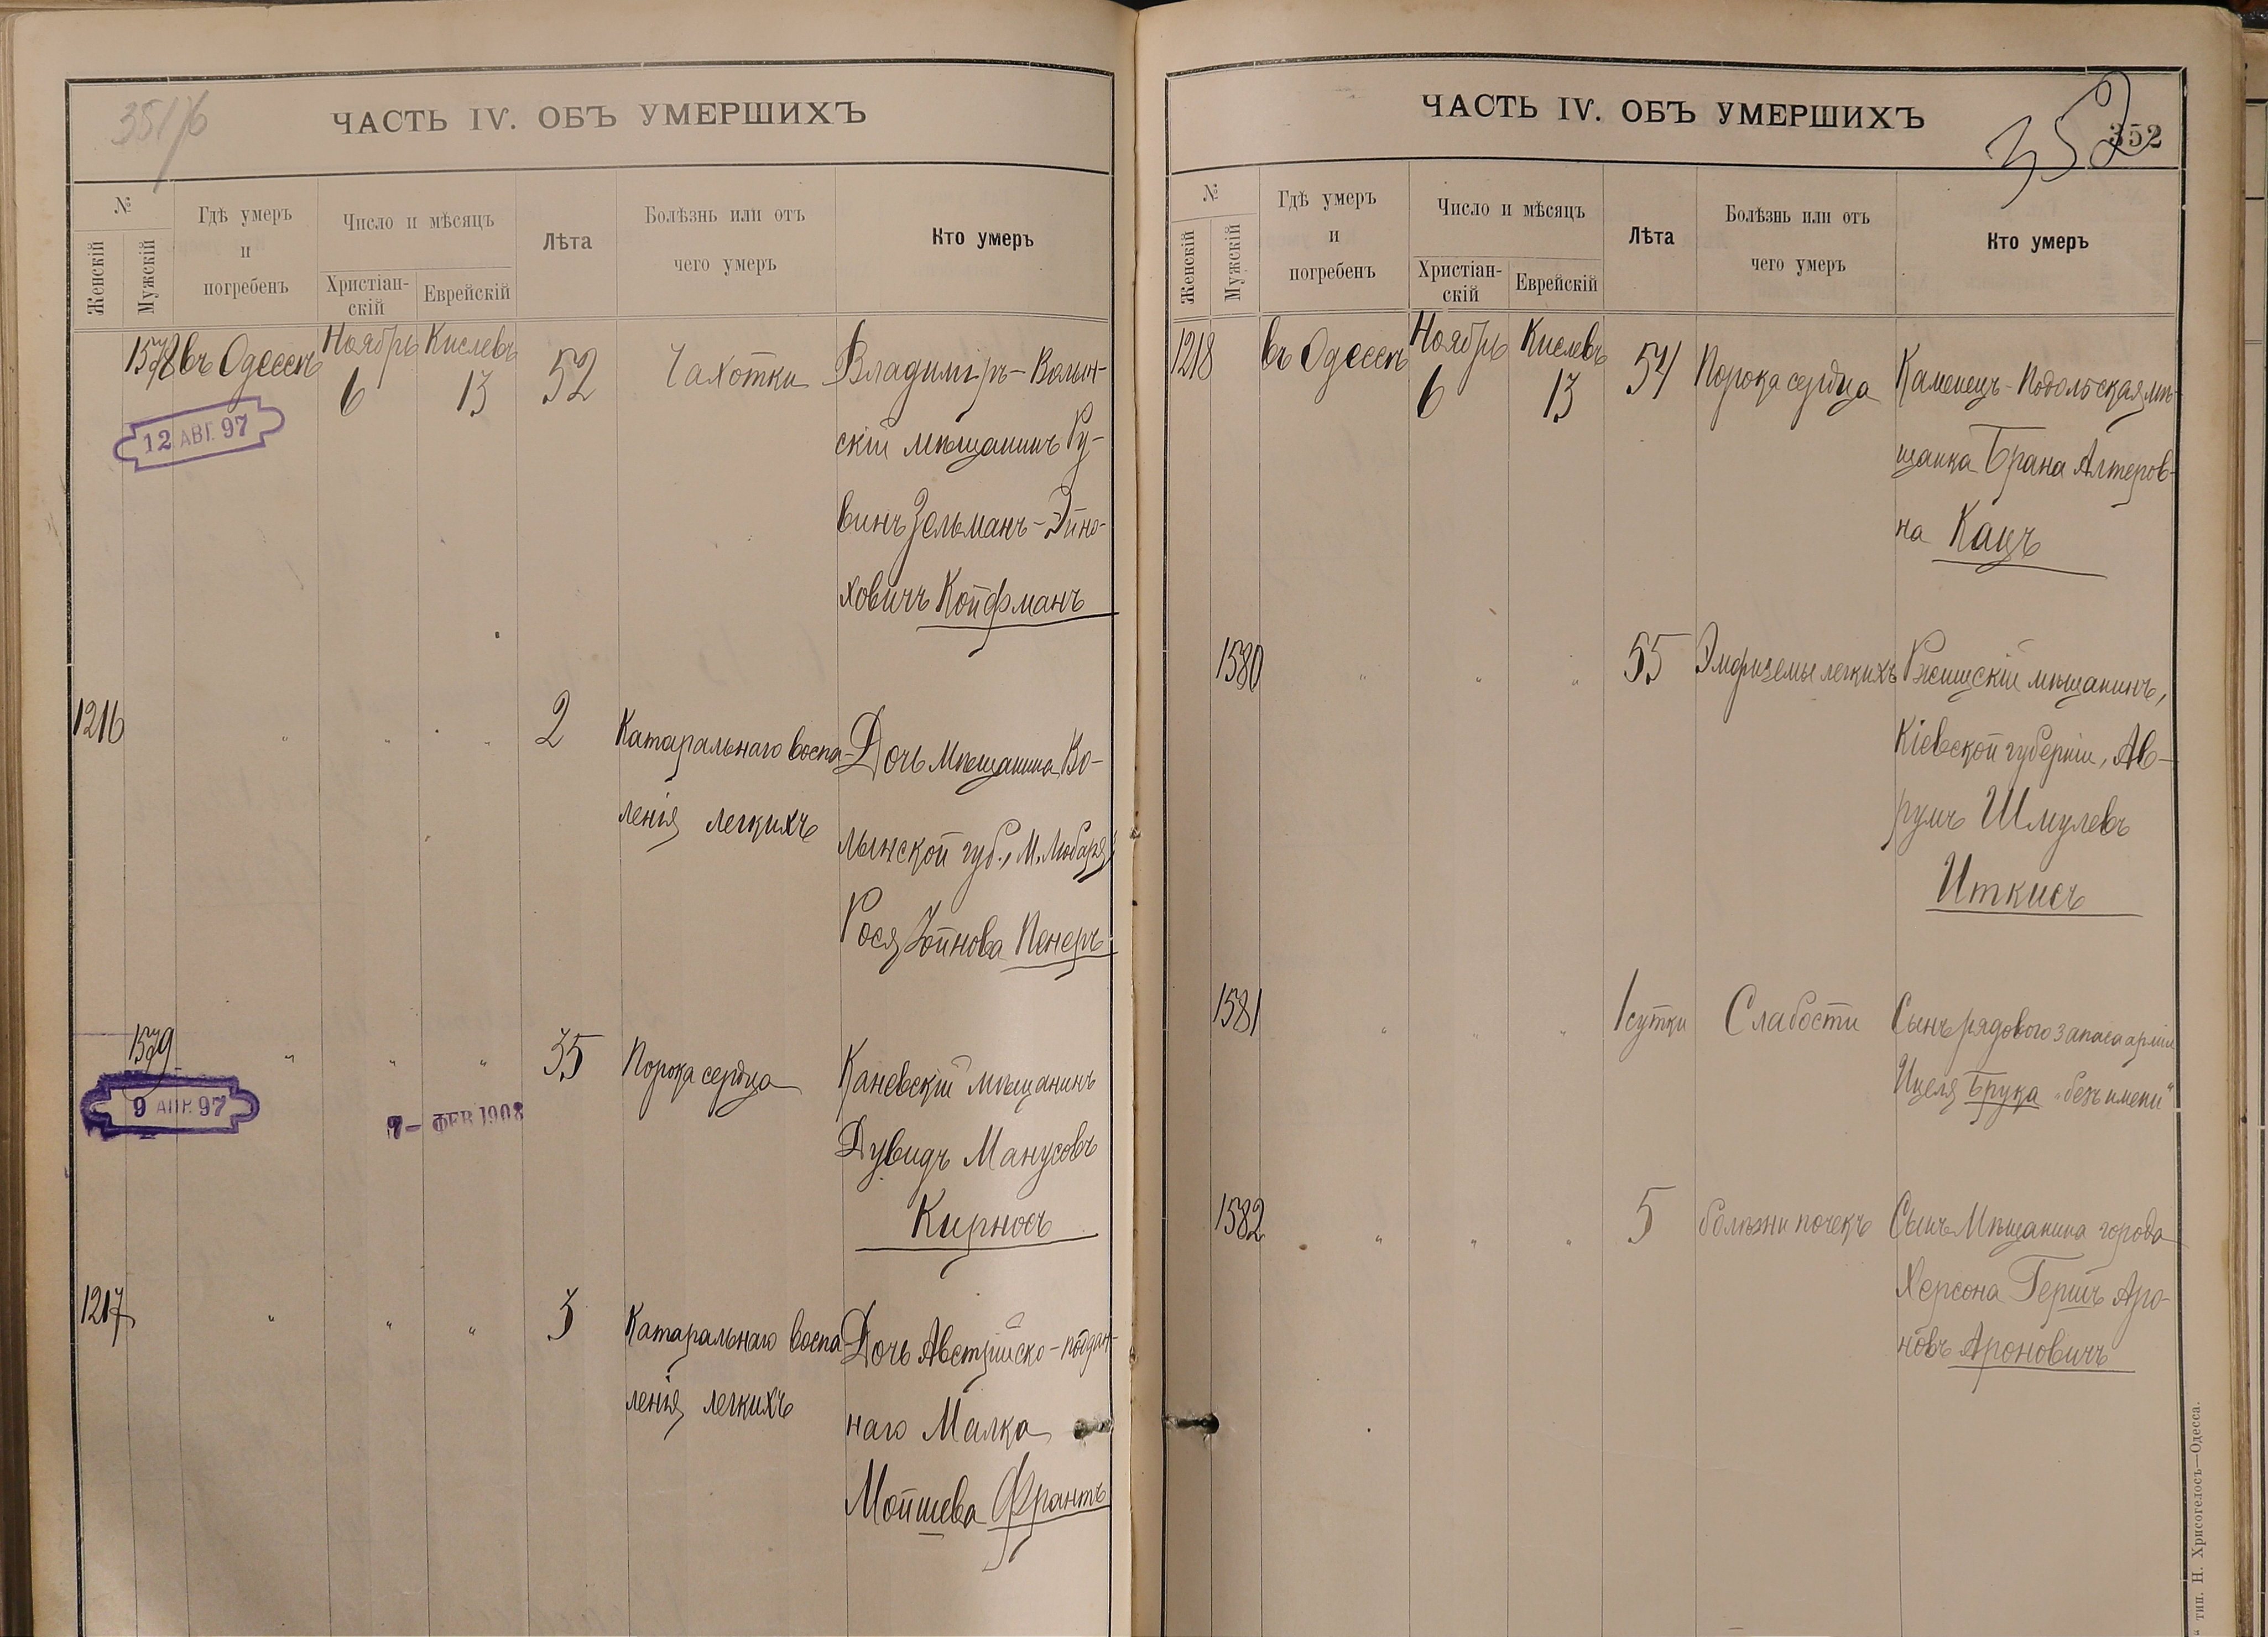 351/б
ЧАСТЬ IV. ОБЪ УМЕРШИХЪ
№
Женскій
Мужскій
Гдѣ умеръ
и
погребенъ
Число и мѣсяцъ
Христіан-
скій
Еврейскій
Лѣта
Болѣзнь или отъ
чего умеръ
Кто умеръ
1578 въ Одессѣ Ноябрь Кислевъ 52 Чахотки Владиміръ-Волын-
6 13
12 АВГ. 97
скій мѣщанинъ Ру-
винъ Зельманъ-Эйно-
ховичъ Койфманъ
1216 " " " 2 Катаральнаго воспа- Дочь Мѣщанина Во-
ленія легкихъ лынской губ., М. Любаря
Рося Іойнова Пенеръ
1579 " " " 35 Порока сердца Каневскій мѣщанинъ
9 АПР. 97
7- ФЕВ 1908
Дувидъ Манусовъ
Кирносъ
1217 " " " 3 Катаральнаго воспа- Дочь Австрійско-поддан-
ленія легкихъ наго Малка
Мойшева Франтъ
ЧАСТЬ IV. ОБЪ УМЕРШИХЪ
352
352
№
Женскій
Мужскій
Гдѣ умеръ
и
погребенъ
Число и мѣсяцъ
Христіан-
скій
Еврейскій
Лѣта
Болѣзнь или отъ
чего умеръ
Кто умеръ
1218 въ Одессѣ Ноябрь Кислевъ 54 Порока сердца Каменецъ-Подольская мѣ-
6 13
щанка Брана Алтеров-
на Кацъ
1580 " " " 55 Эмфиземы легкихъ Ржищскій мѣщанинъ,
Кіевской губерніи, Ав-
румъ Шмулевъ
Иткисъ
1581 " " " 1 сутки Слабости Сынъ рядового запаса арміи
Ицеля Брука "безъ имени"
1582 " " " 5 болѣзни почекъ Сынъ Мѣщанина города
Херсона Гершъ Аро-
новъ Ароновичъ
" тип. Н. Хрисогелосъ—Одесса.